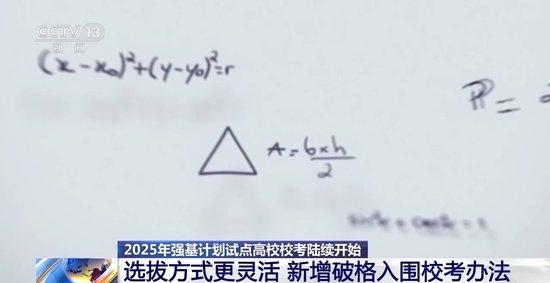 CCTV 13
新闻
(x-x₀)²+(y-y₀)²=r
A = b×h/2
2025年强基计划试点高校校考陆续开始
选拔方式更灵活 新增破格入围校考办法